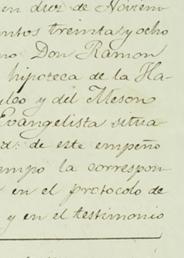 en diez de Noviem
entos treinta y ocho
no Don Ramon
hipoteca de la Ha-
y del Meson
Evangelista situa
d: de este empeño
empo la correspon
en el protocolo de
y en el testimonio